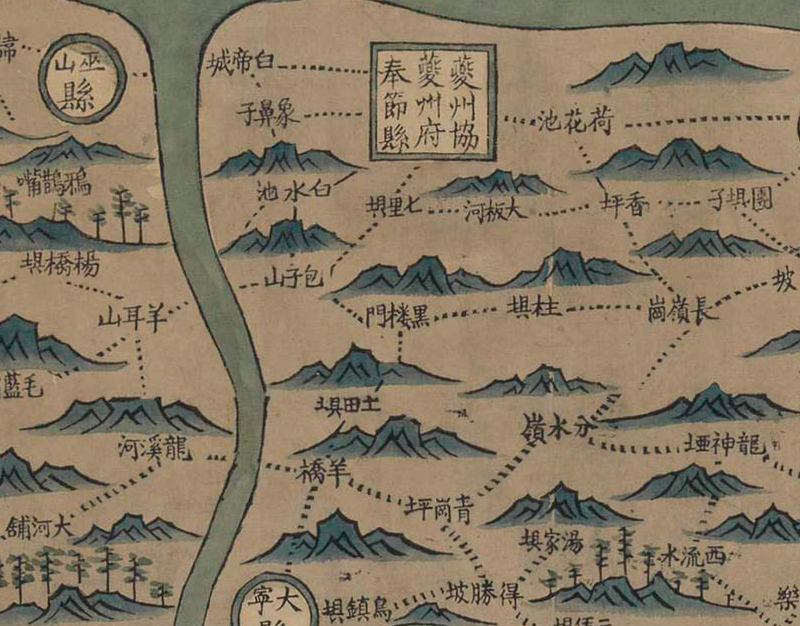 巫山縣
白帝城
夔州協
夔州府
奉節縣
象鼻子
荷花池
白水池
鴉鵲嘴
七里垻
大板河
香坪
團垻子
楊橋垻
包子山
羊耳山
黑楼門
柱垻
長嶺崗
坡
毛藍
土田垻
分水嶺
龍溪河
龍神埡
羊橋
青崗坪
大河舖
湯家垻
西流水
大寧縣
鳥鎮垻
得勝坡